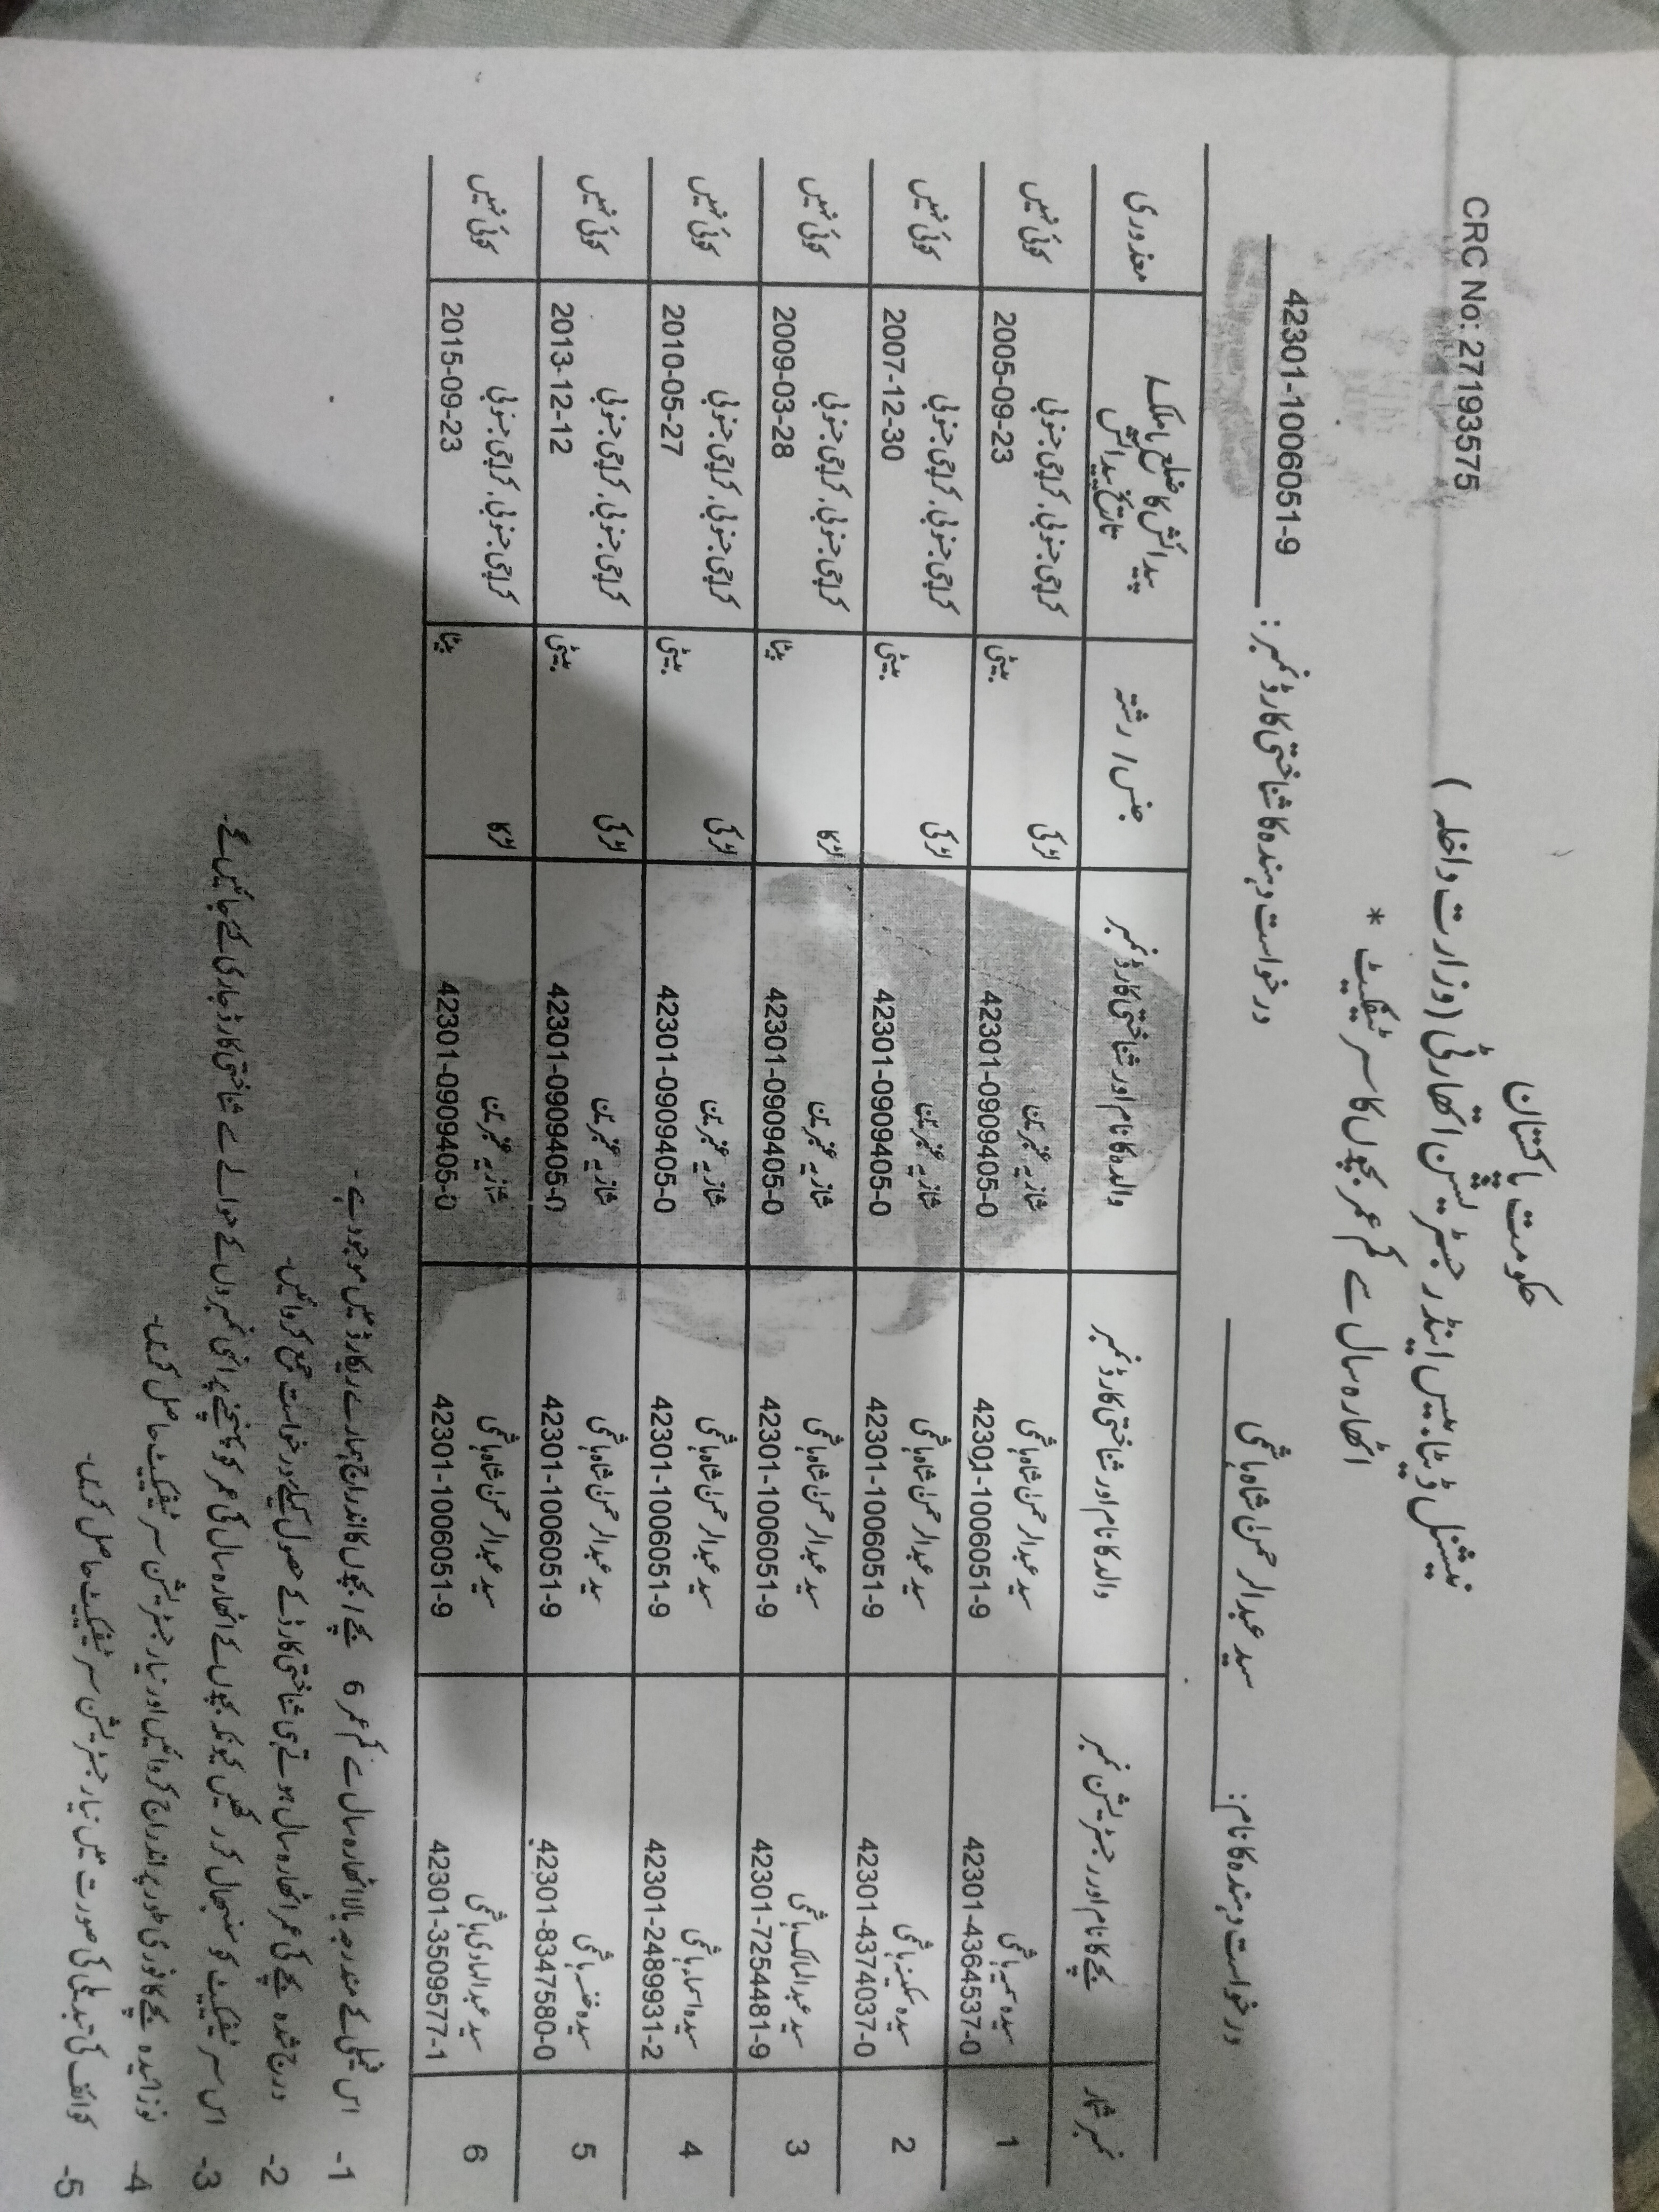 CRC No: 27193575
حکومت پاکستان
نیشنل ڈیٹا بیس اینڈ رجسٹریشن اتھارٹی (وزارت داخلہ)
اٹھارہ سال سے کم عمر بچوں کا سرٹیفکیٹ *
درخواست دہندہ کا نام: سید عبدالرحمن شاہ ہاشمی
درخواست دہندہ کا شناختی کارڈ نمبر: 42301-1006051-9
نمبر شمار
بچے کا نام اور رجسٹریشن نمبر
والد کا نام اور شناختی کارڈ نمبر
والدہ کا نام اور شناختی کارڈ نمبر
جنس / رشتہ
پیدائش کا ضلع یا ملک /
تاریخ پیدائش
معذوری
1 سیدہ سمیہ ہاشمی سید عبدالرحمن شاہ ہاشمی شازیہ عنبرین لڑکی کراچی جنوبی، کراچی جنوبی کوئی نہیں
42301-4364537-0 42301-1006051-9 42301-0909405-0 بیٹی 2005-09-23
2 سیدہ سکینہ ہاشمی سید عبدالرحمن شاہ ہاشمی شازیہ عنبرین لڑکی کراچی جنوبی، کراچی جنوبی کوئی نہیں
42301-4374037-0 42301-1006051-9 42301-0909405-0 بیٹی 2007-12-30
3 سید عبدالمالک ہاشمی سید عبدالرحمن شاہ ہاشمی شازیہ عنبرین لڑکا کراچی جنوبی، کراچی جنوبی کوئی نہیں
42301-7254481-9 42301-1006051-9 42301-0909405-0 بیٹا 2009-03-28
4 سیدہ اسماء ہاشمی سید عبدالرحمن شاہ ہاشمی شازیہ عنبرین لڑکی کراچی جنوبی، کراچی جنوبی کوئی نہیں
42301-2489931-2 42301-1006051-9 42301-0909405-0 بیٹی 2010-05-27
5 سیدہ حفصہ ہاشمی سید عبدالرحمن شاہ ہاشمی شازیہ عنبرین لڑکی کراچی جنوبی، کراچی جنوبی کوئی نہیں
42301-8347580-0 42301-1006051-9 42301-0909405-0 بیٹی 2013-12-12
6 سید عبدالہادی ہاشمی سید عبدالرحمن شاہ ہاشمی شازیہ عنبرین لڑکا کراچی جنوبی، کراچی جنوبی کوئی نہیں
42301-3509577-1 42301-1006051-9 42301-0909405-0 بیٹا 2015-09-23
1- اس فیملی کے مندرجہ بالا اٹھارہ سال سے کم عمر 6 بچے / بچوں کا اندراج ہمارے ریکارڈ میں موجود ہے۔
2- درج شدہ بچے کی عمر اٹھارہ سال ہوتے ہی شناختی کارڈ کے حصول کیلئے درخواست جمع کروائیں۔
3- اس سرٹیفکیٹ کو سنبھال کر رکھیں کیونکہ بچوں کے اٹھارہ سال کی عمر کو پہنچنے پر انہی نمبروں کے حوالے سے شناختی کارڈ جاری کئے جائیں گے۔
4- نوزائیدہ بچے کا فوری طور پر اندراج کروائیں اور نیا رجسٹریشن سرٹیفکیٹ حاصل کریں۔
5- کوائف کی تبدیلی کی صورت میں نیا رجسٹریشن سرٹیفکیٹ حاصل کریں۔